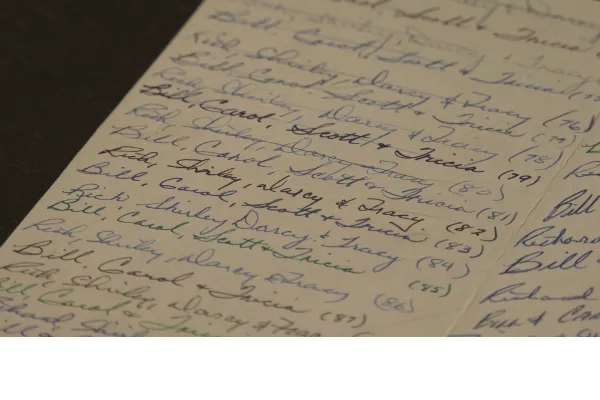 Scott & Tricia
Rich, Shirley, Darcy & Tracy
Bill, Carol, Scott & Tricia
Rich, Shirley, Darcy & Tracy (76)
Bill, Carol, Scott & Tricia (77)
Rich, Shirley, Darcy & Tracy (78)
Bill, Carol, Scott & Tricia (79)
Rich, Shirley, Darcy & Tracy (80)
Bill, Carol, Scott & Tricia (81)
Rich, Shirley, Darcy & Tracy (82)
Bill, Carol, Scott & Tricia (83)
Rich, Shirley, Darcy & Tracy (84)
Bill, Carol, Scott & Tricia (85)
Rich, Shirley, Darcy & Tracy (86)
Bill, Carol & Tricia (87)
Rich, Shirley, Darcy &
Bill Carol &
Bill
Richard
Bill
Richard
Bill &